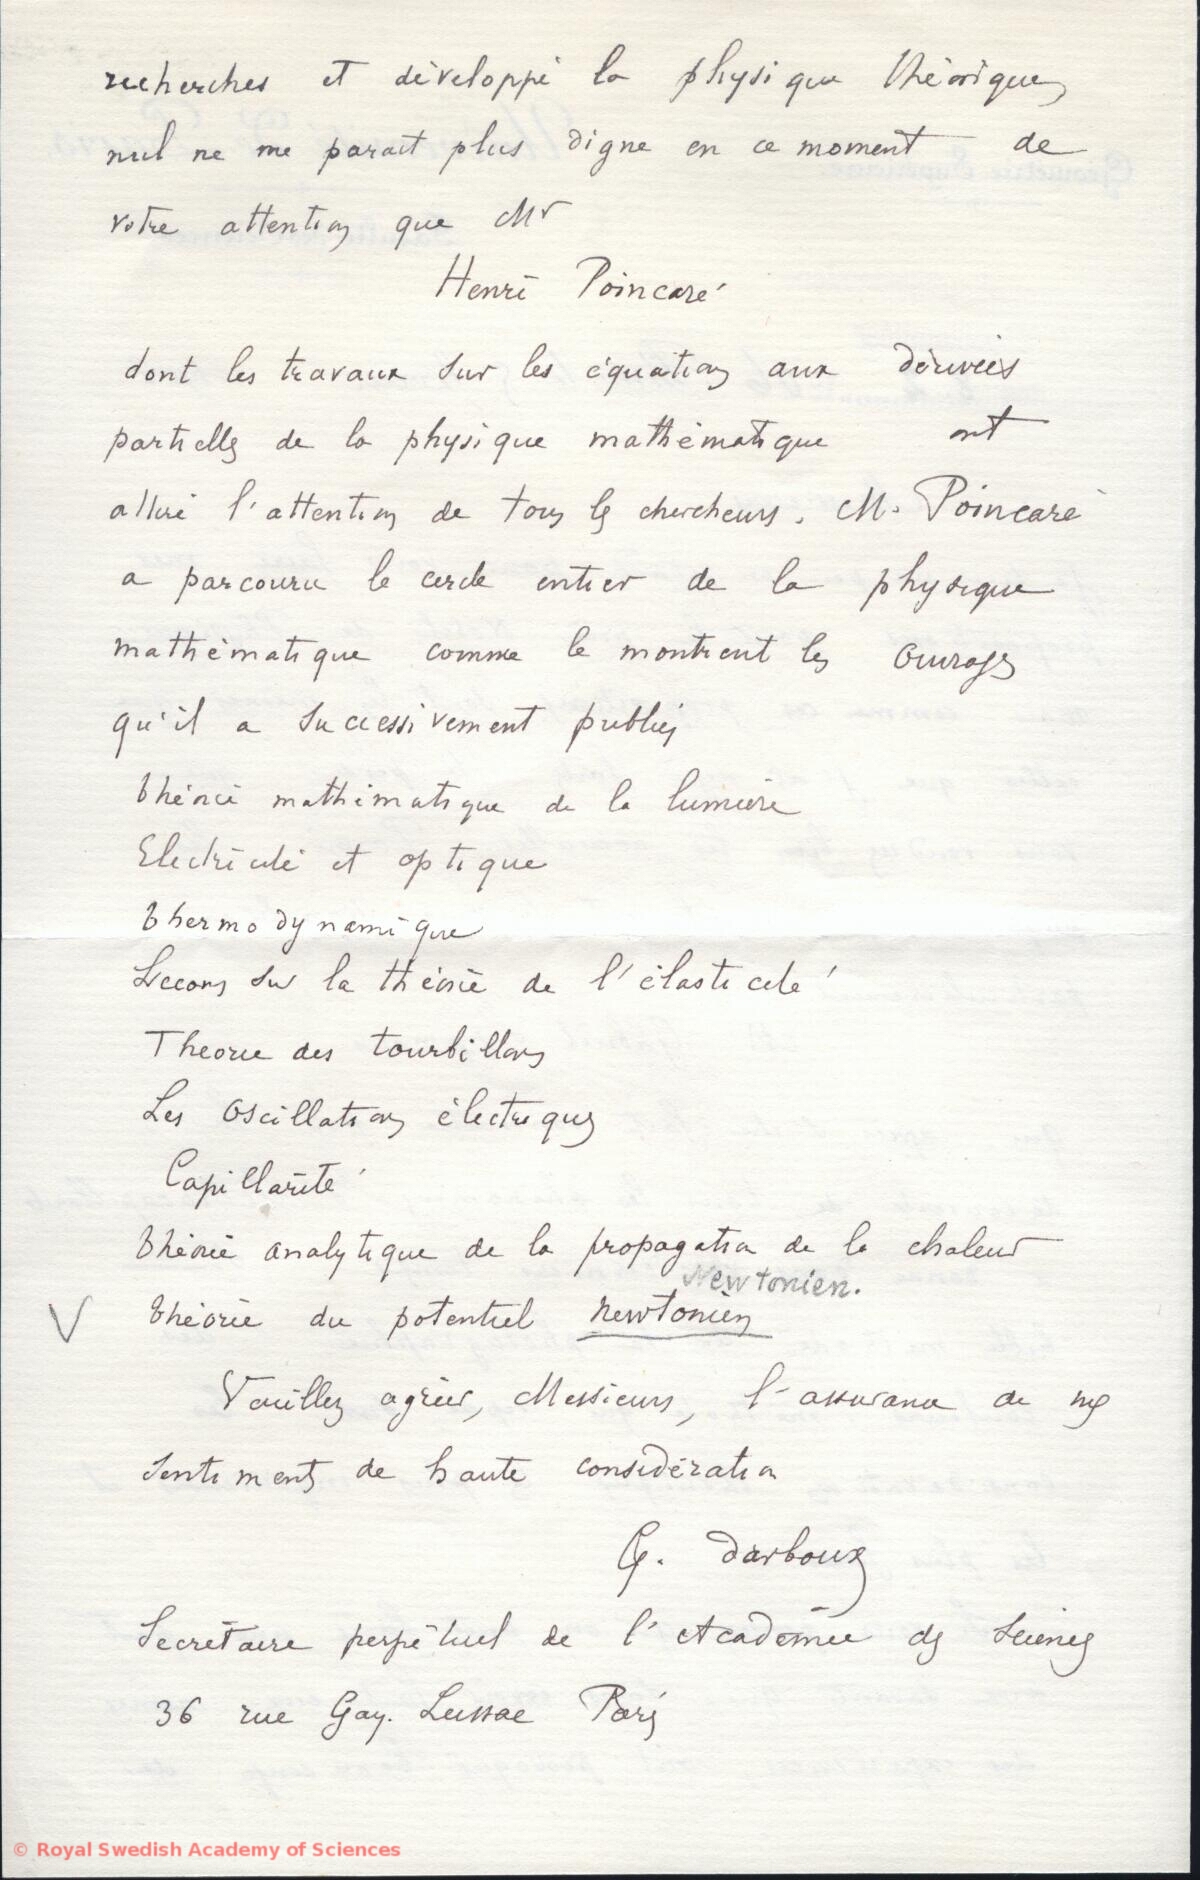 recherches et développé la physique théorique,
nul ne me parait plus digne en ce moment de
votre attention que Mr
Henri Poincaré
dont les travaux sur les équations aux dérivées
partielles de la physique mathématique ont
attiré l'attention de tous les chercheurs. M. Poincaré
a parcouru le cercle entier de la physique
mathématique comme le montrent les ouvrages
qu'il a successivement publiés
théorie mathématique de la lumière
Electricité et optique
thermodynamique
Leçons sur la théorie de l'élasticité
Theorie des tourbillons
Les oscillations électriques
Capillarité
théorie analytique de la propagation de la chaleur
Newtonien.
V théorie du potentiel newtonien
Veuillez agréer, Messieurs, l'assurance de mes
sentiments de haute considération
G. Darboux
Secrétaire perpétuel de l'Académie des Sciences
36 rue Gay. Lussac Paris
© Royal Swedish Academy of Sciences